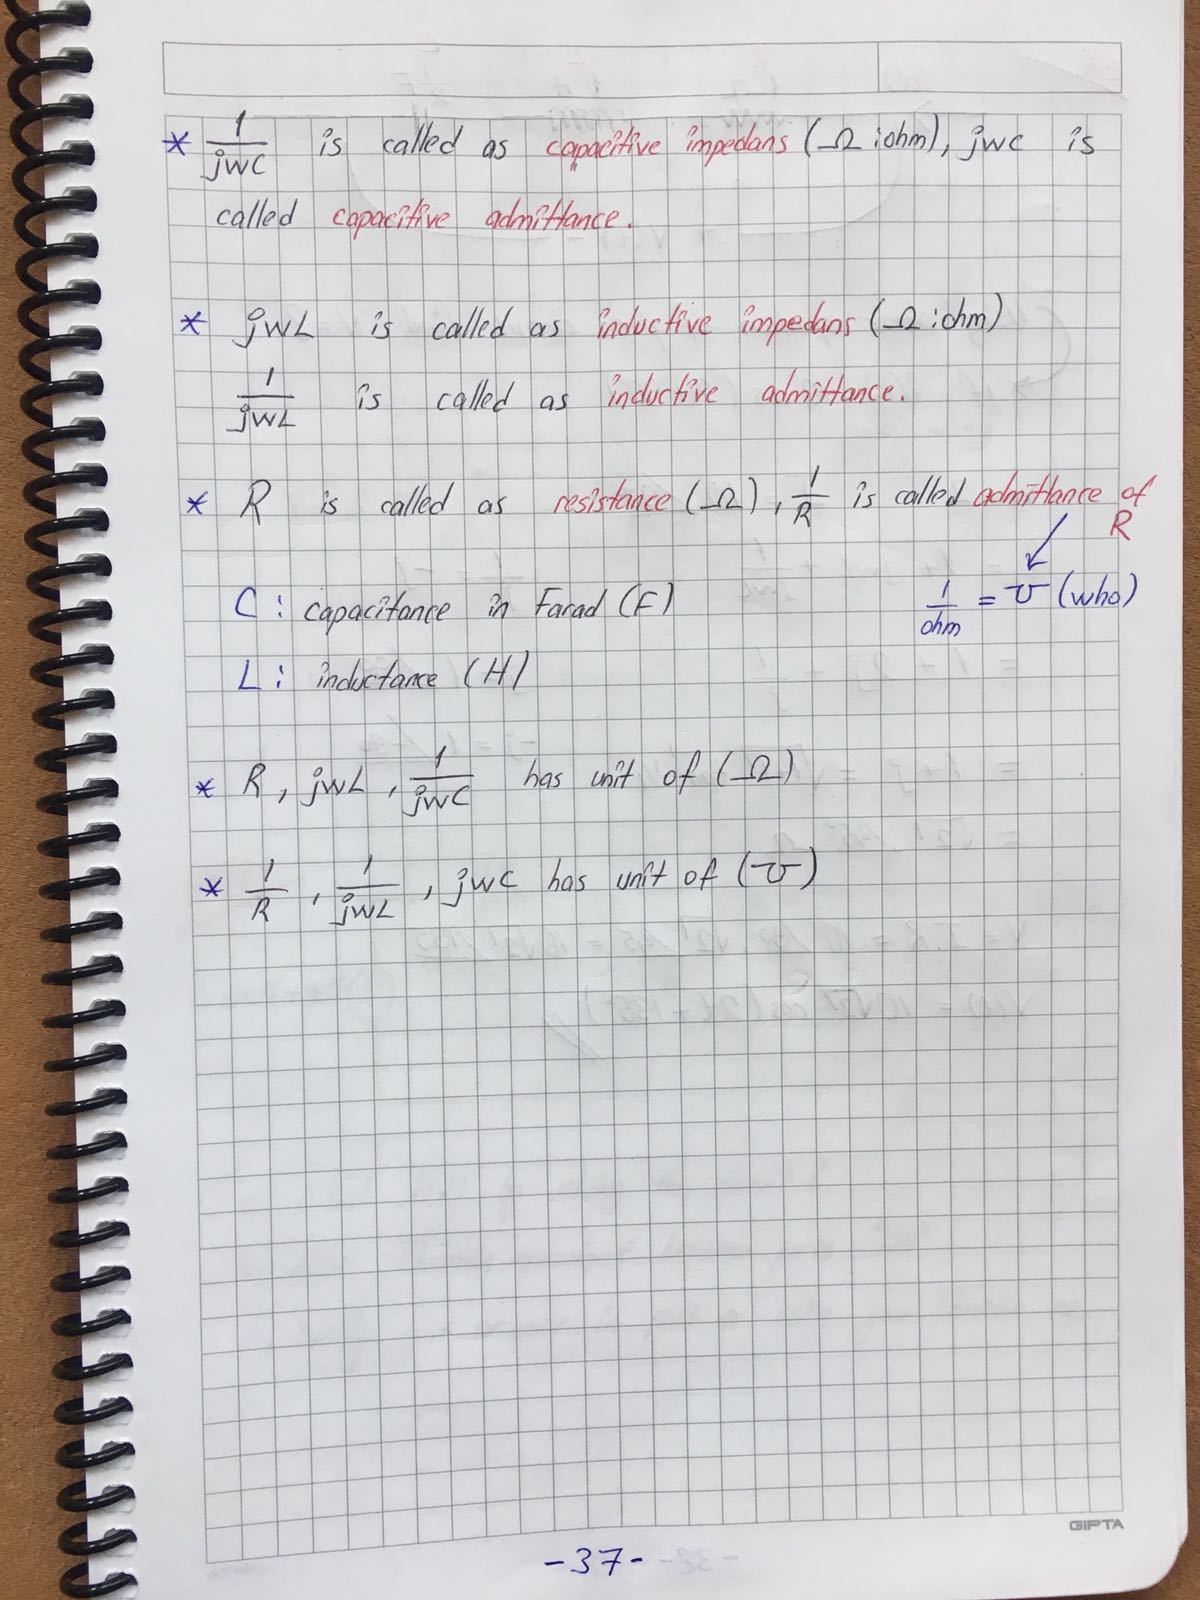 * 1/jwC is called as capacitive impedans (Ω : ohm), jwc is
called capacitive admittance.
* jwL is called as inductive impedans (Ω : ohm)
1/jwL is called as inductive admittance.
* R is called as resistance (Ω), 1/R is called admittance of
R
C : capacitance in Farad (F) 1/ohm = ℧ (who)
L : inductance (H)
* R, jwL, 1/jwC has unit of (Ω)
* 1/R, 1/jwL, jwc has unit of (℧)
GIPTA
-37-